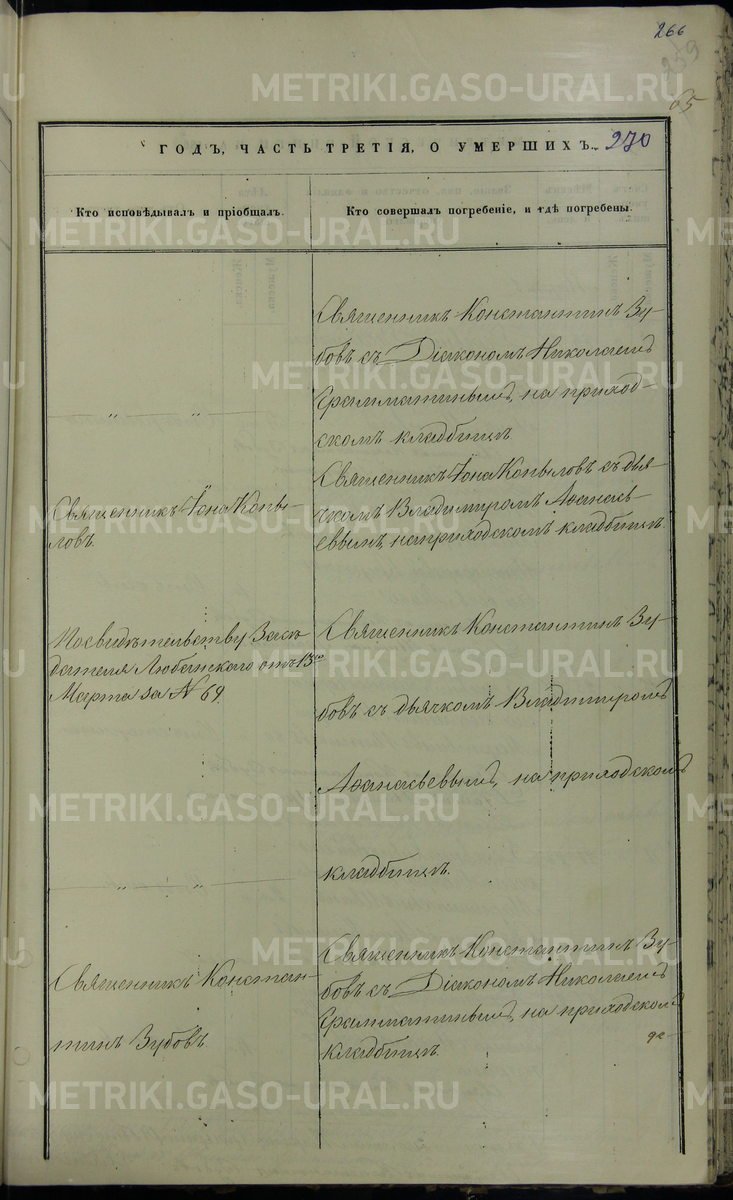 266
259
65
ГОДЪ, ЧАСТЬ ТРЕТІЯ, О УМЕРШИХЪ. 270
Кто исповѣдывалъ и пріобщалъ.
Кто совершалъ погребеніе, и гдѣ погребены.
Священникъ Константинъ Зу-
бовъ съ Діакономъ Николаемъ
Грамматинымъ, на приход-
скомъ кладбищѣ
„ „
Священникъ Іона Копы-
ловъ.
Священникъ Іона Копыловъ съ дья-
чкомъ Владимиромъ Аѳанась-
евымъ, на приходскомъ кладбищѣ.
По свидѣтельству Засѣ-
дателя Любанского отъ 13го
Марта за № 69
Священникъ Константинъ Зу-
бовъ съ дьячкомъ Владимиромъ
Аѳанасьевымъ, на приходскомъ
кладбищѣ.
„ „
Священникъ Констан-
тинъ Зубовъ
Священникъ Константинъ Зу-
бовъ съ Діакономъ Николаемъ
Грамматинымъ, на приходскомъ
кладбищѣ.
METRIKI.GASO-URAL.RU